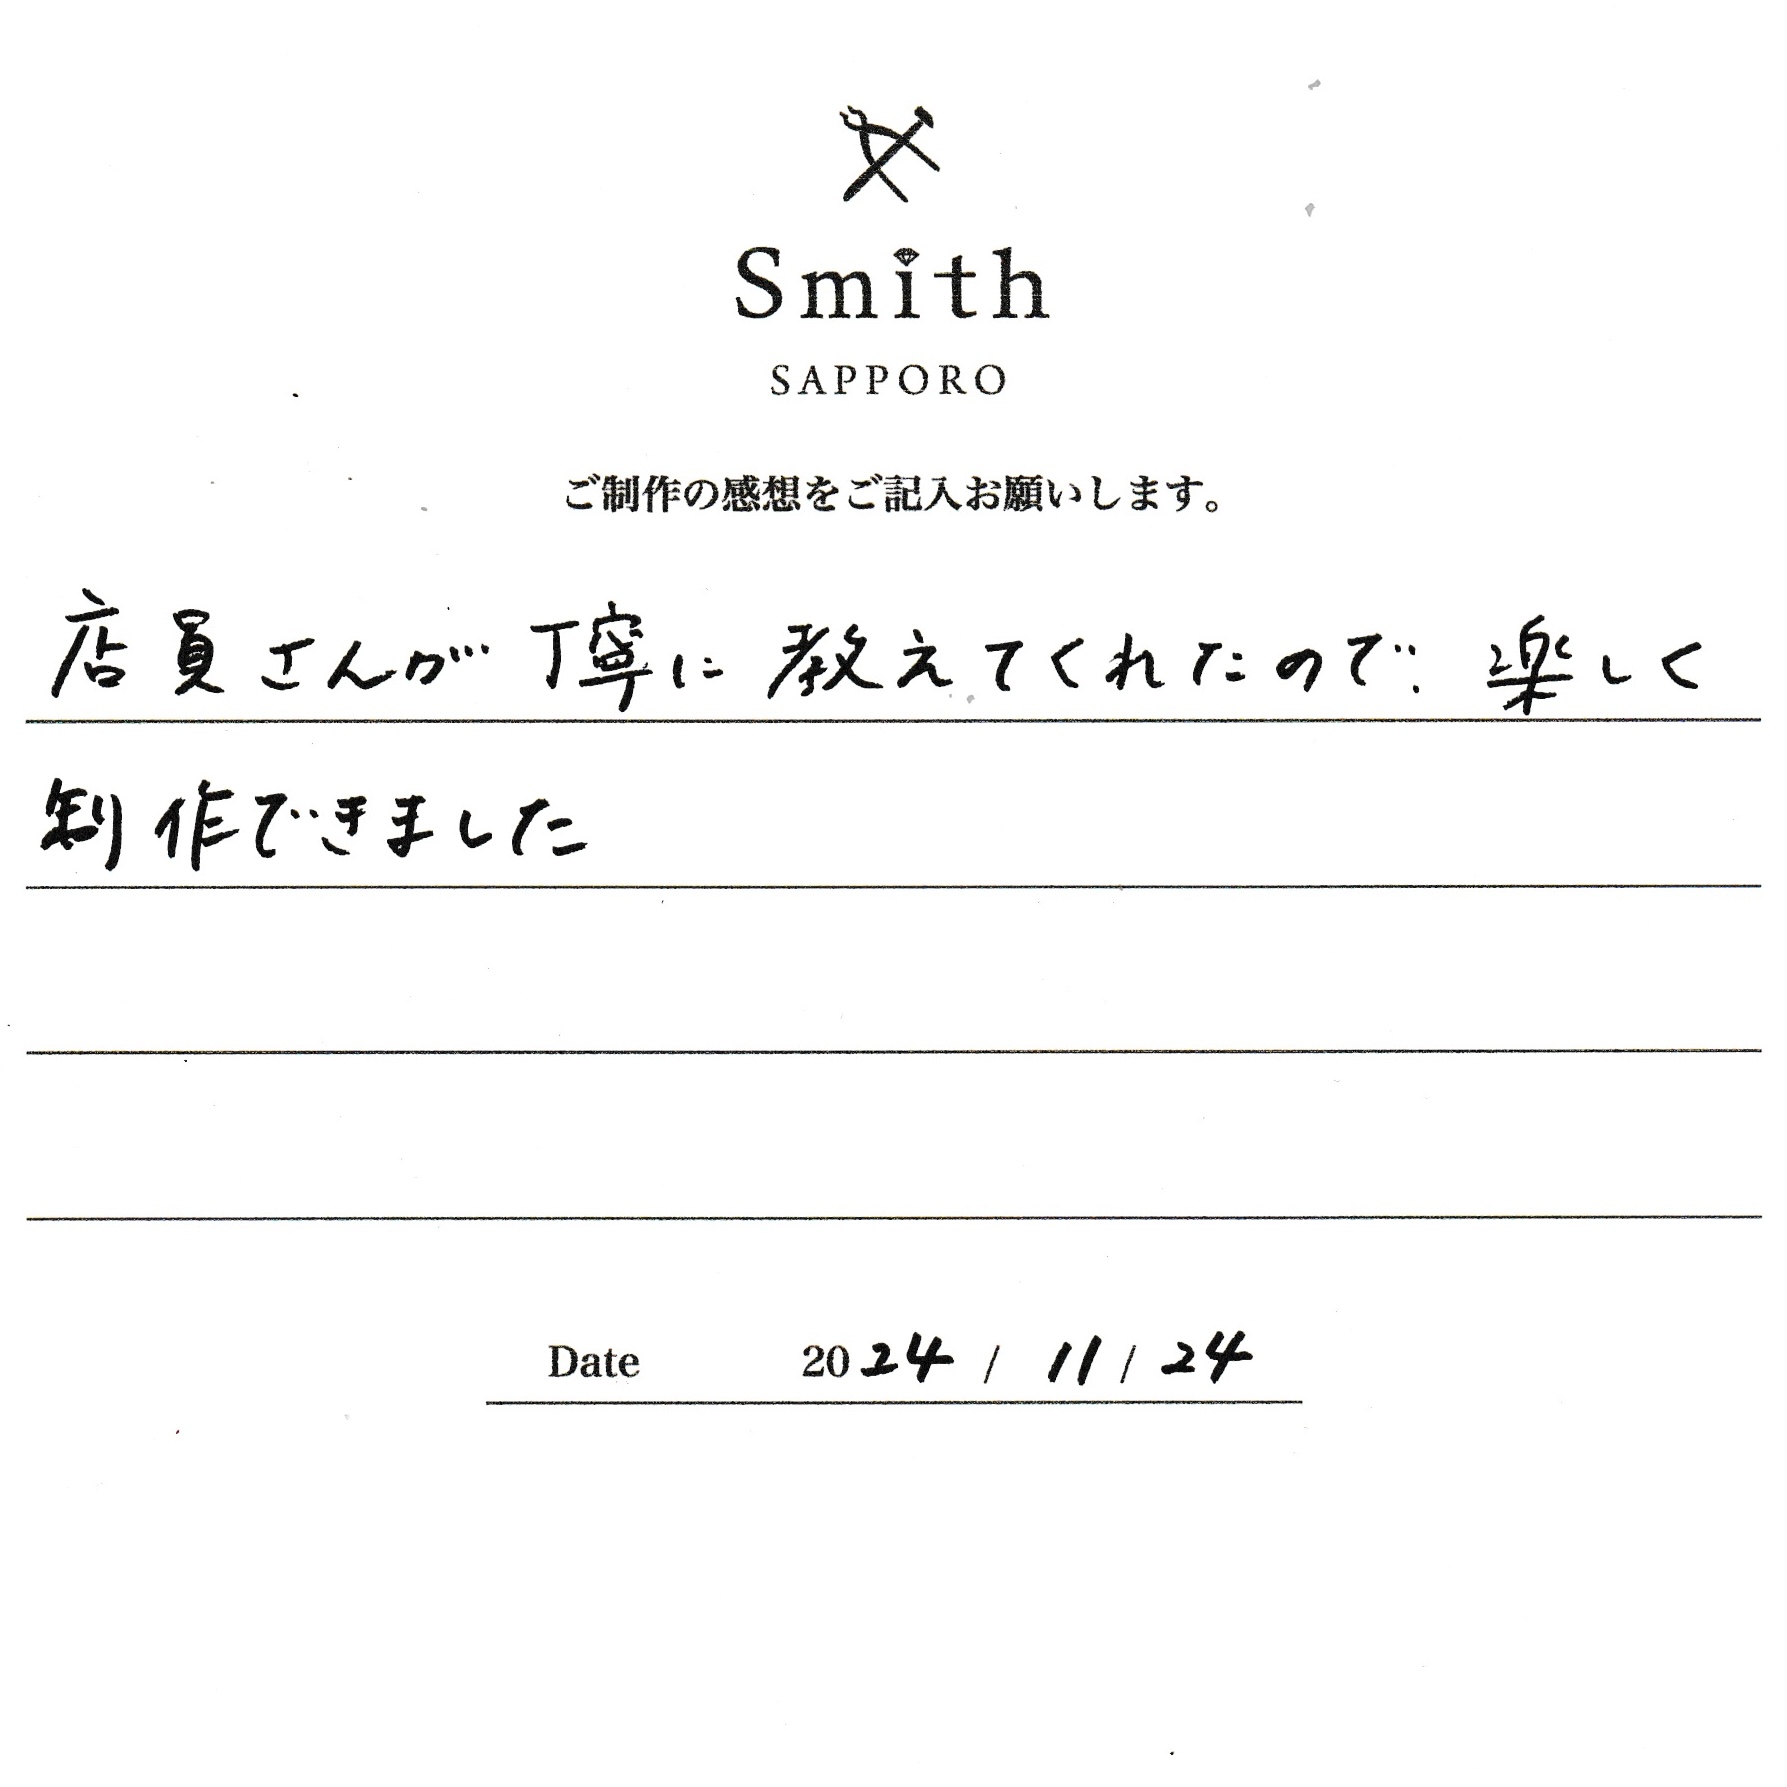 Smith
SAPPORO
ご制作の感想をご記入お願いします。
店員さんが丁寧に教えてくれたので、楽しく
制作できました
Date 2024 / 11 / 24